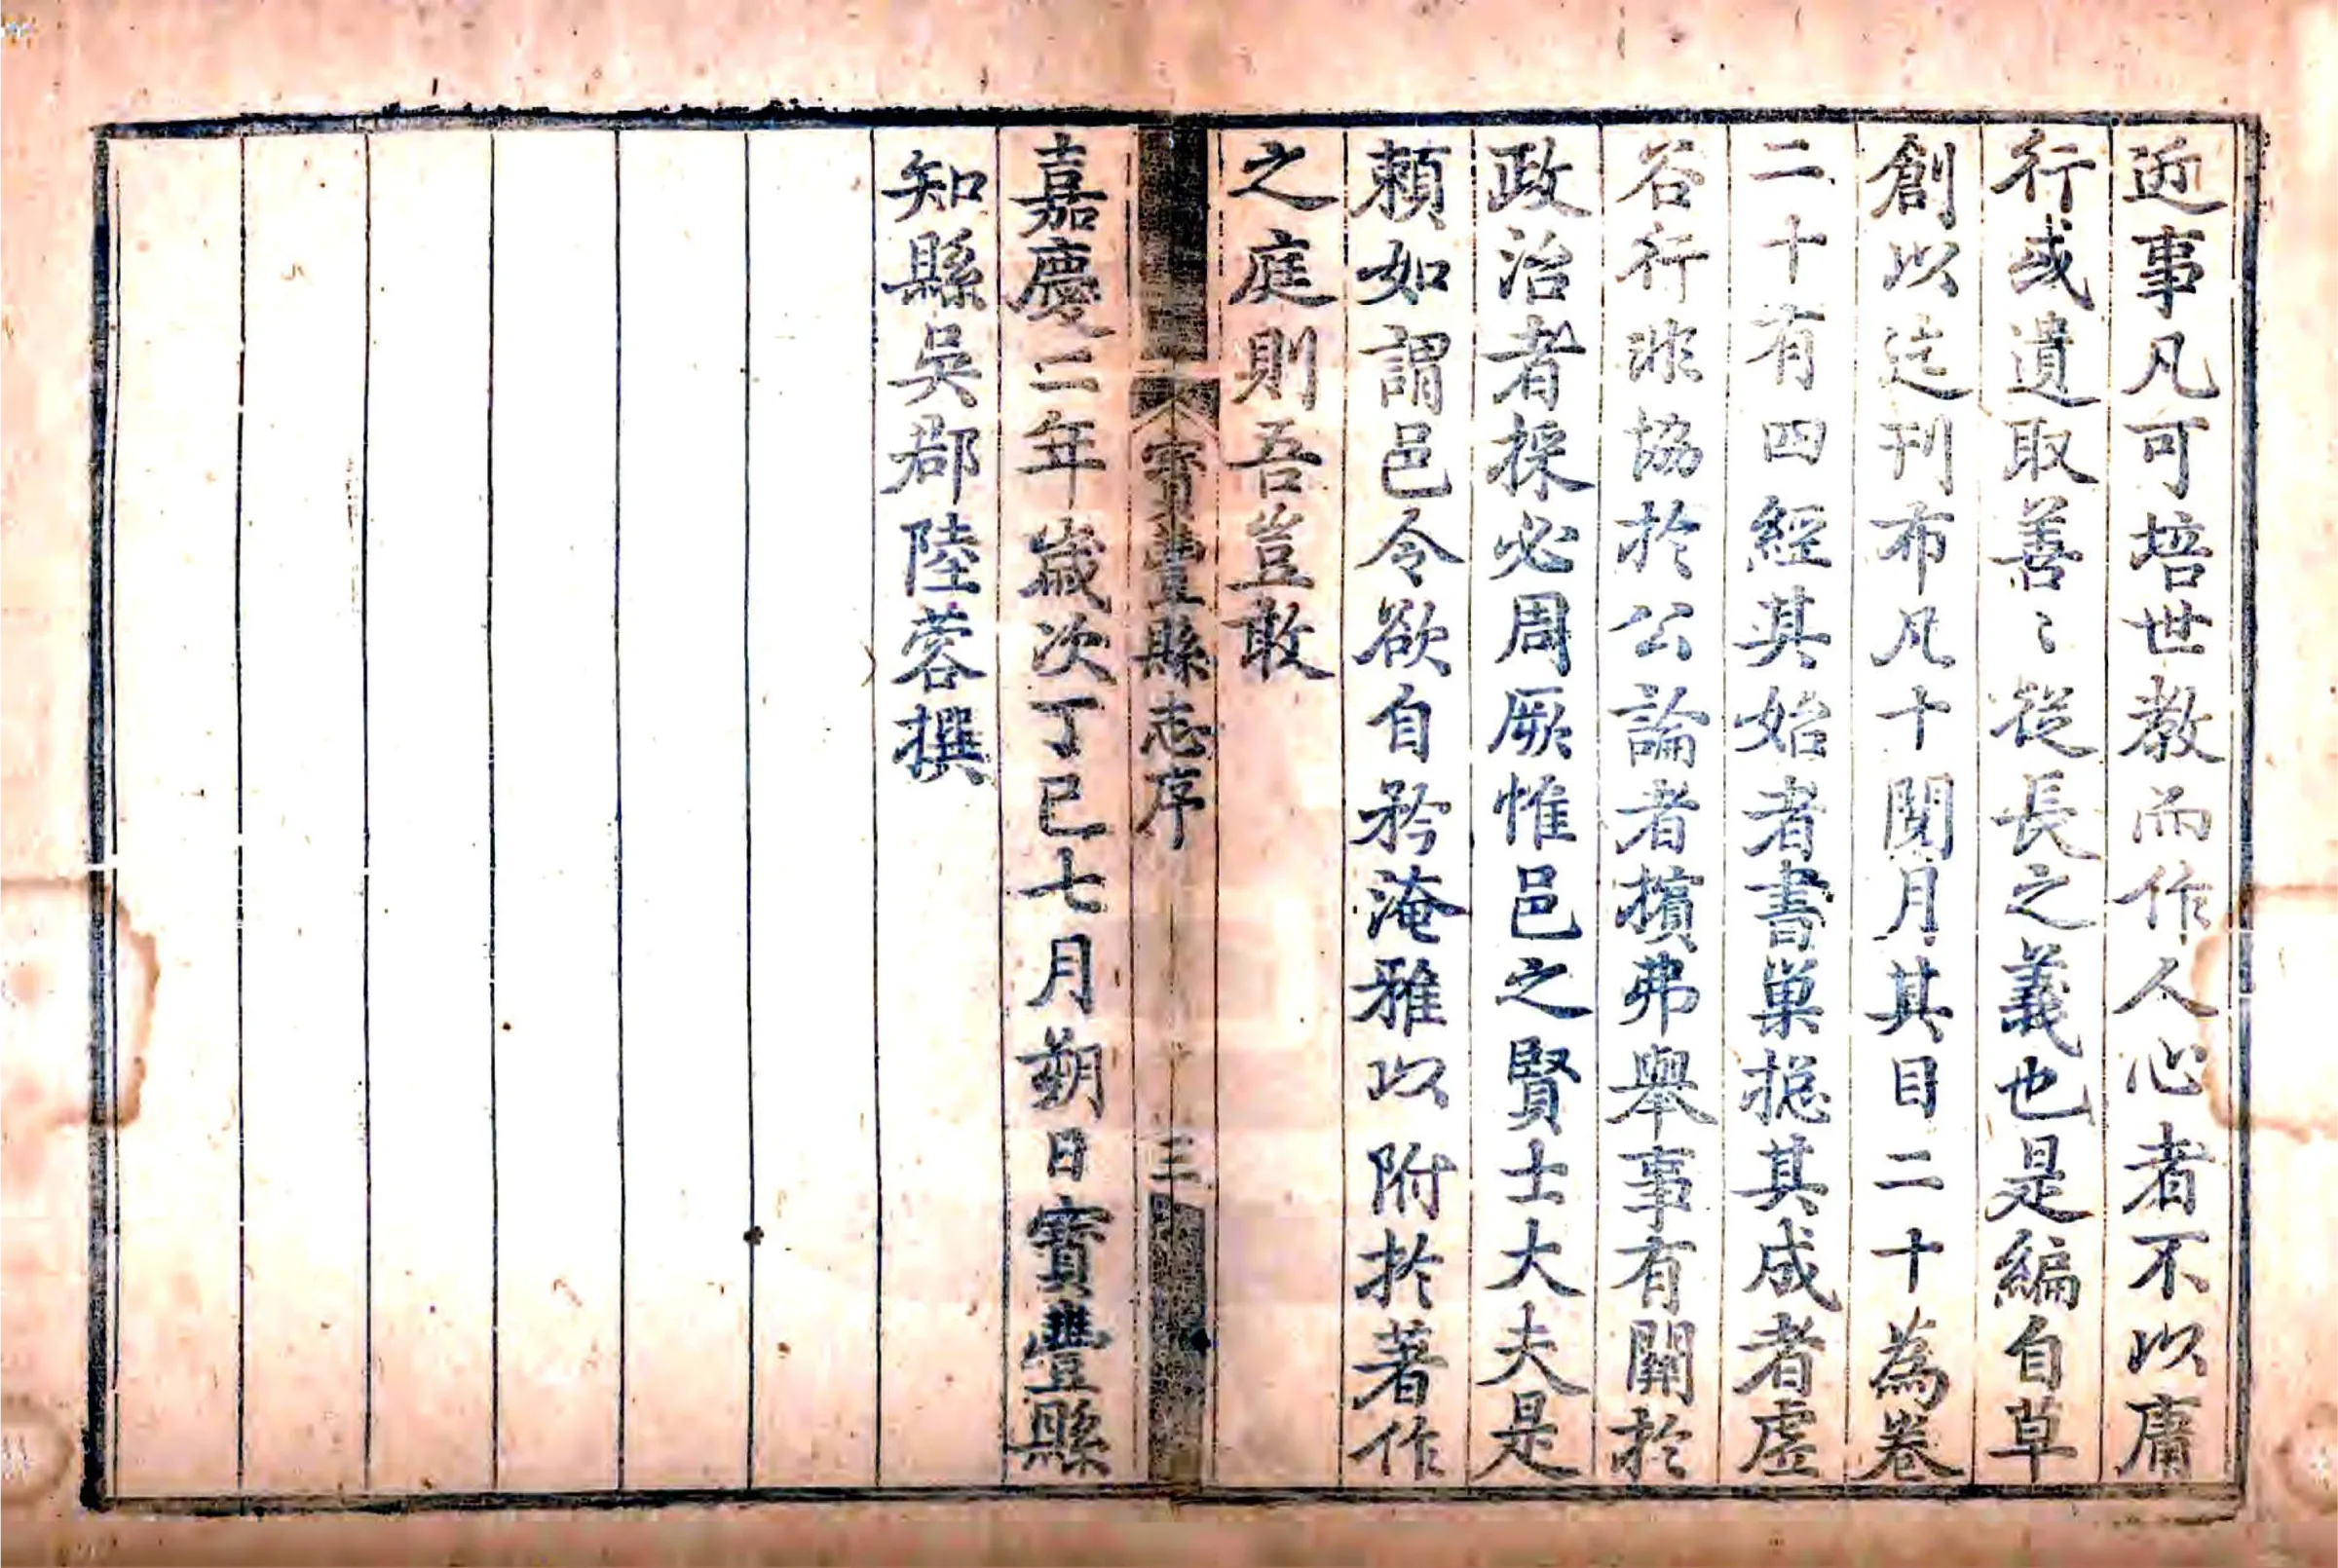 近事凡可培世教而作人心者不以庸
行或遺取善〻從長之義也是編自草
創以迄刊布凡十閱月其目二十為卷
二十有四經其始者書巢揔其成者虛
谷行非協於公論者擯弗舉事有關於
政治者採必周厥惟邑之賢士大夫是
賴如謂邑令欲自矜淹雅以附於著作
之庭則吾豈敢
寶豐縣志序
三
嘉慶二年歲次丁巳七月朔日寶豐縣
知縣吳郡陸蓉撰